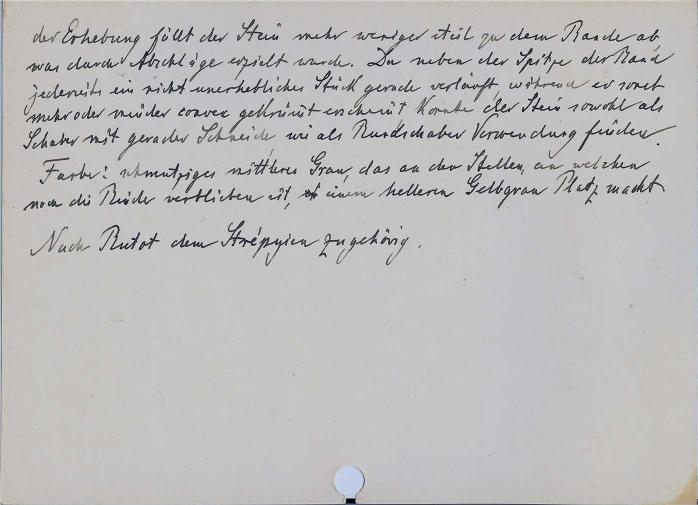 der Erhebung fällt der Stein mehr weniger steil zu dem Rande ab
was durch Abschläge erzielt wurde. Da neben der Spitze der Rand
jederseits ein nicht unerhebliches Stück gerade verläuft, während er sonst
mehr oder minder convex gekrümmt erscheint konnte der Stein sowohl als
Schaber mit gerader Schneide wie als Rundschaber Verwendung finden.
Farbe: schmutziges mittleres Grau, das an den Stellen, an welchen
noch die Rinde verblieben ist, einem helleren Gelbgrau Platz macht
Nach Rutot dem Strépyien zugehörig.